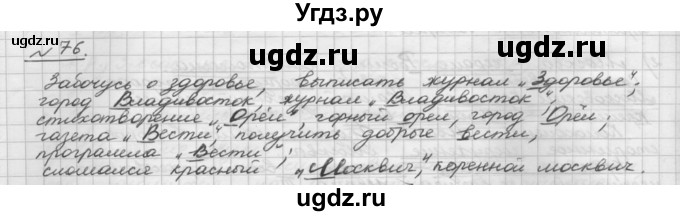 Угдз.ру
№ 76.
uGdz.ru
uGdz.ru
Забочусь о здоровье, выписать журнал „Здоровье“;
город Владивосток, журнал „Владивосток“;
стихотворение „Орёл“, горный орел, город Орёл;
газета „Вести“, получить добрые вести,
программа „Вести“;
сломался красный „Москвич“, коренной москвич.
uGdz.ru
uGdz.ru